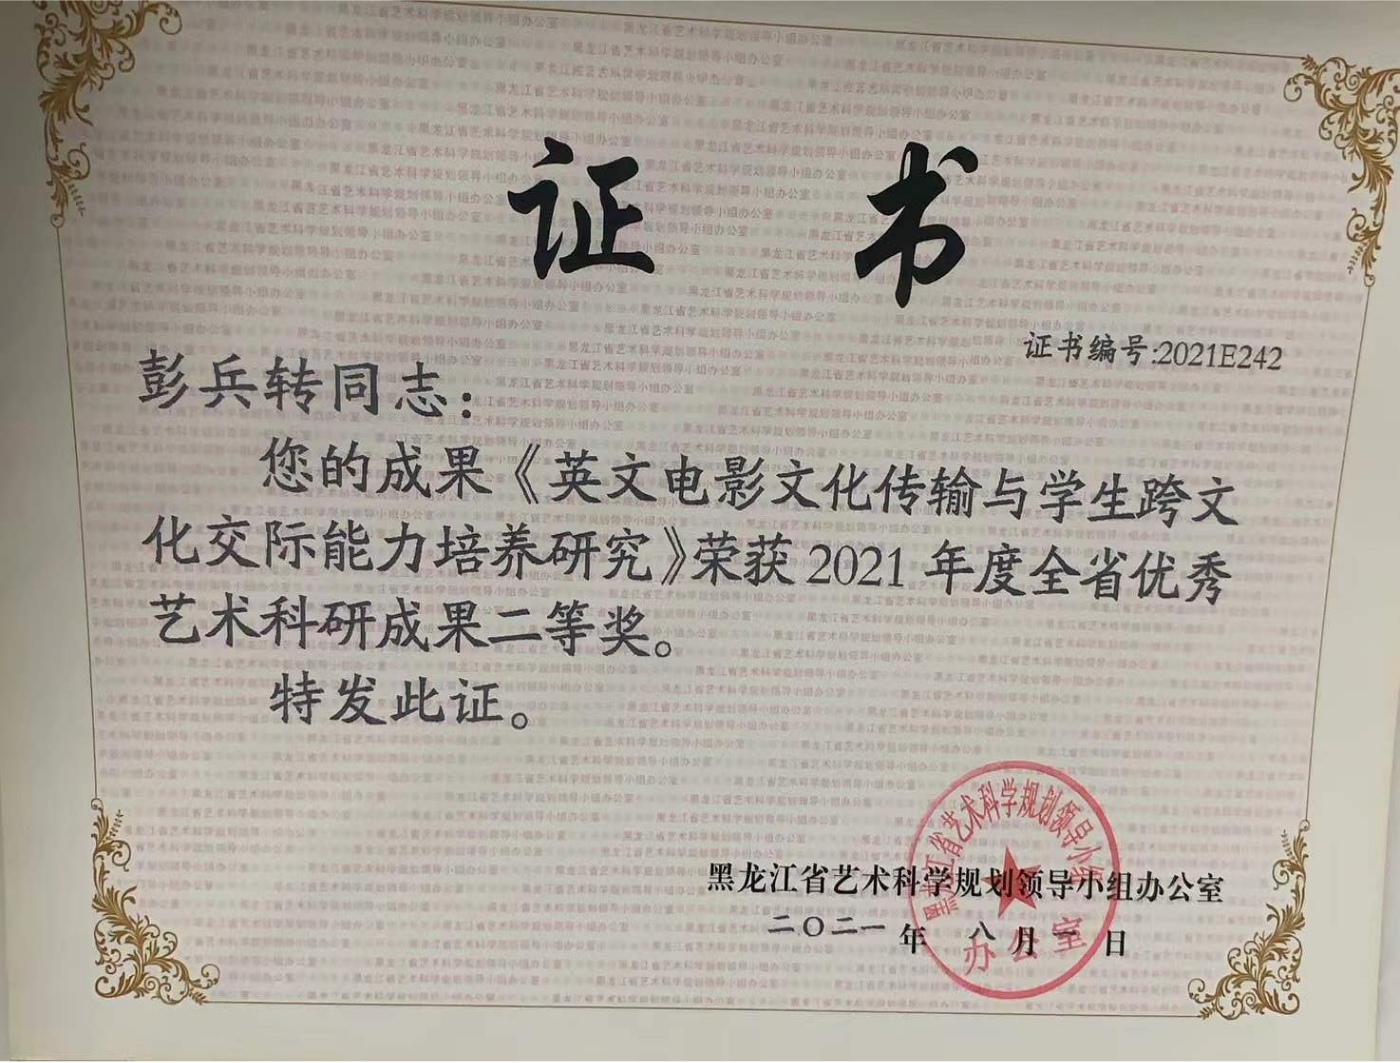 证书
证书编号:2021E242
彭兵转同志:
您的成果《英文电影文化传输与学生跨文
化交际能力培养研究》荣获 2021 年度全省优秀
艺术科研成果二等奖。
特发此证。
黑龙江省艺术科学规划领导小组办公室
二〇二一年 八月一日
黑龙江省艺术科学规划领导小组
办公室